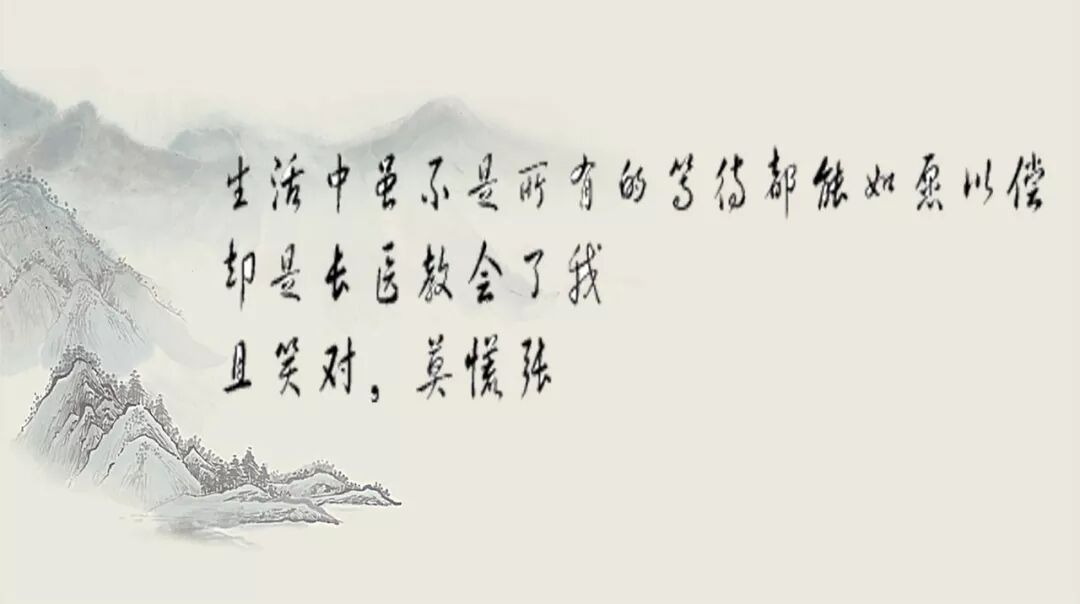 生活中虽不是所有的等待都能如愿以偿
却是长医教会了我
且笑对，莫慌张